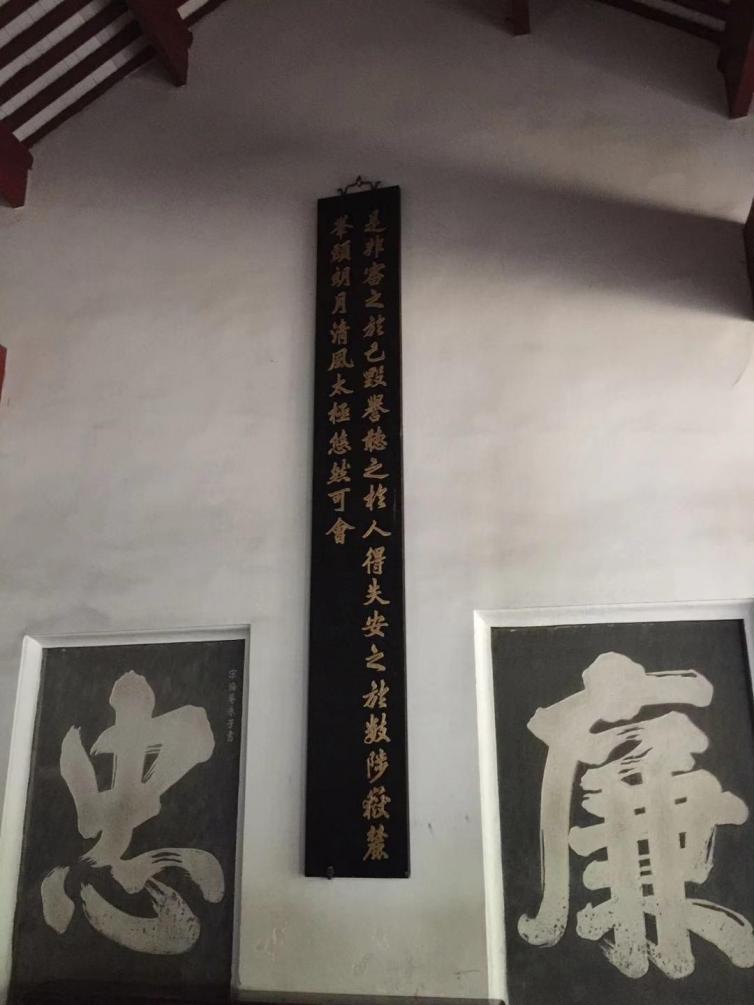 廉
是非審之於己毀譽聽之於人得失安之於數陟嶽麓
峯頭朗月清風太極悠然可會
忠
宋晦菴朱子書